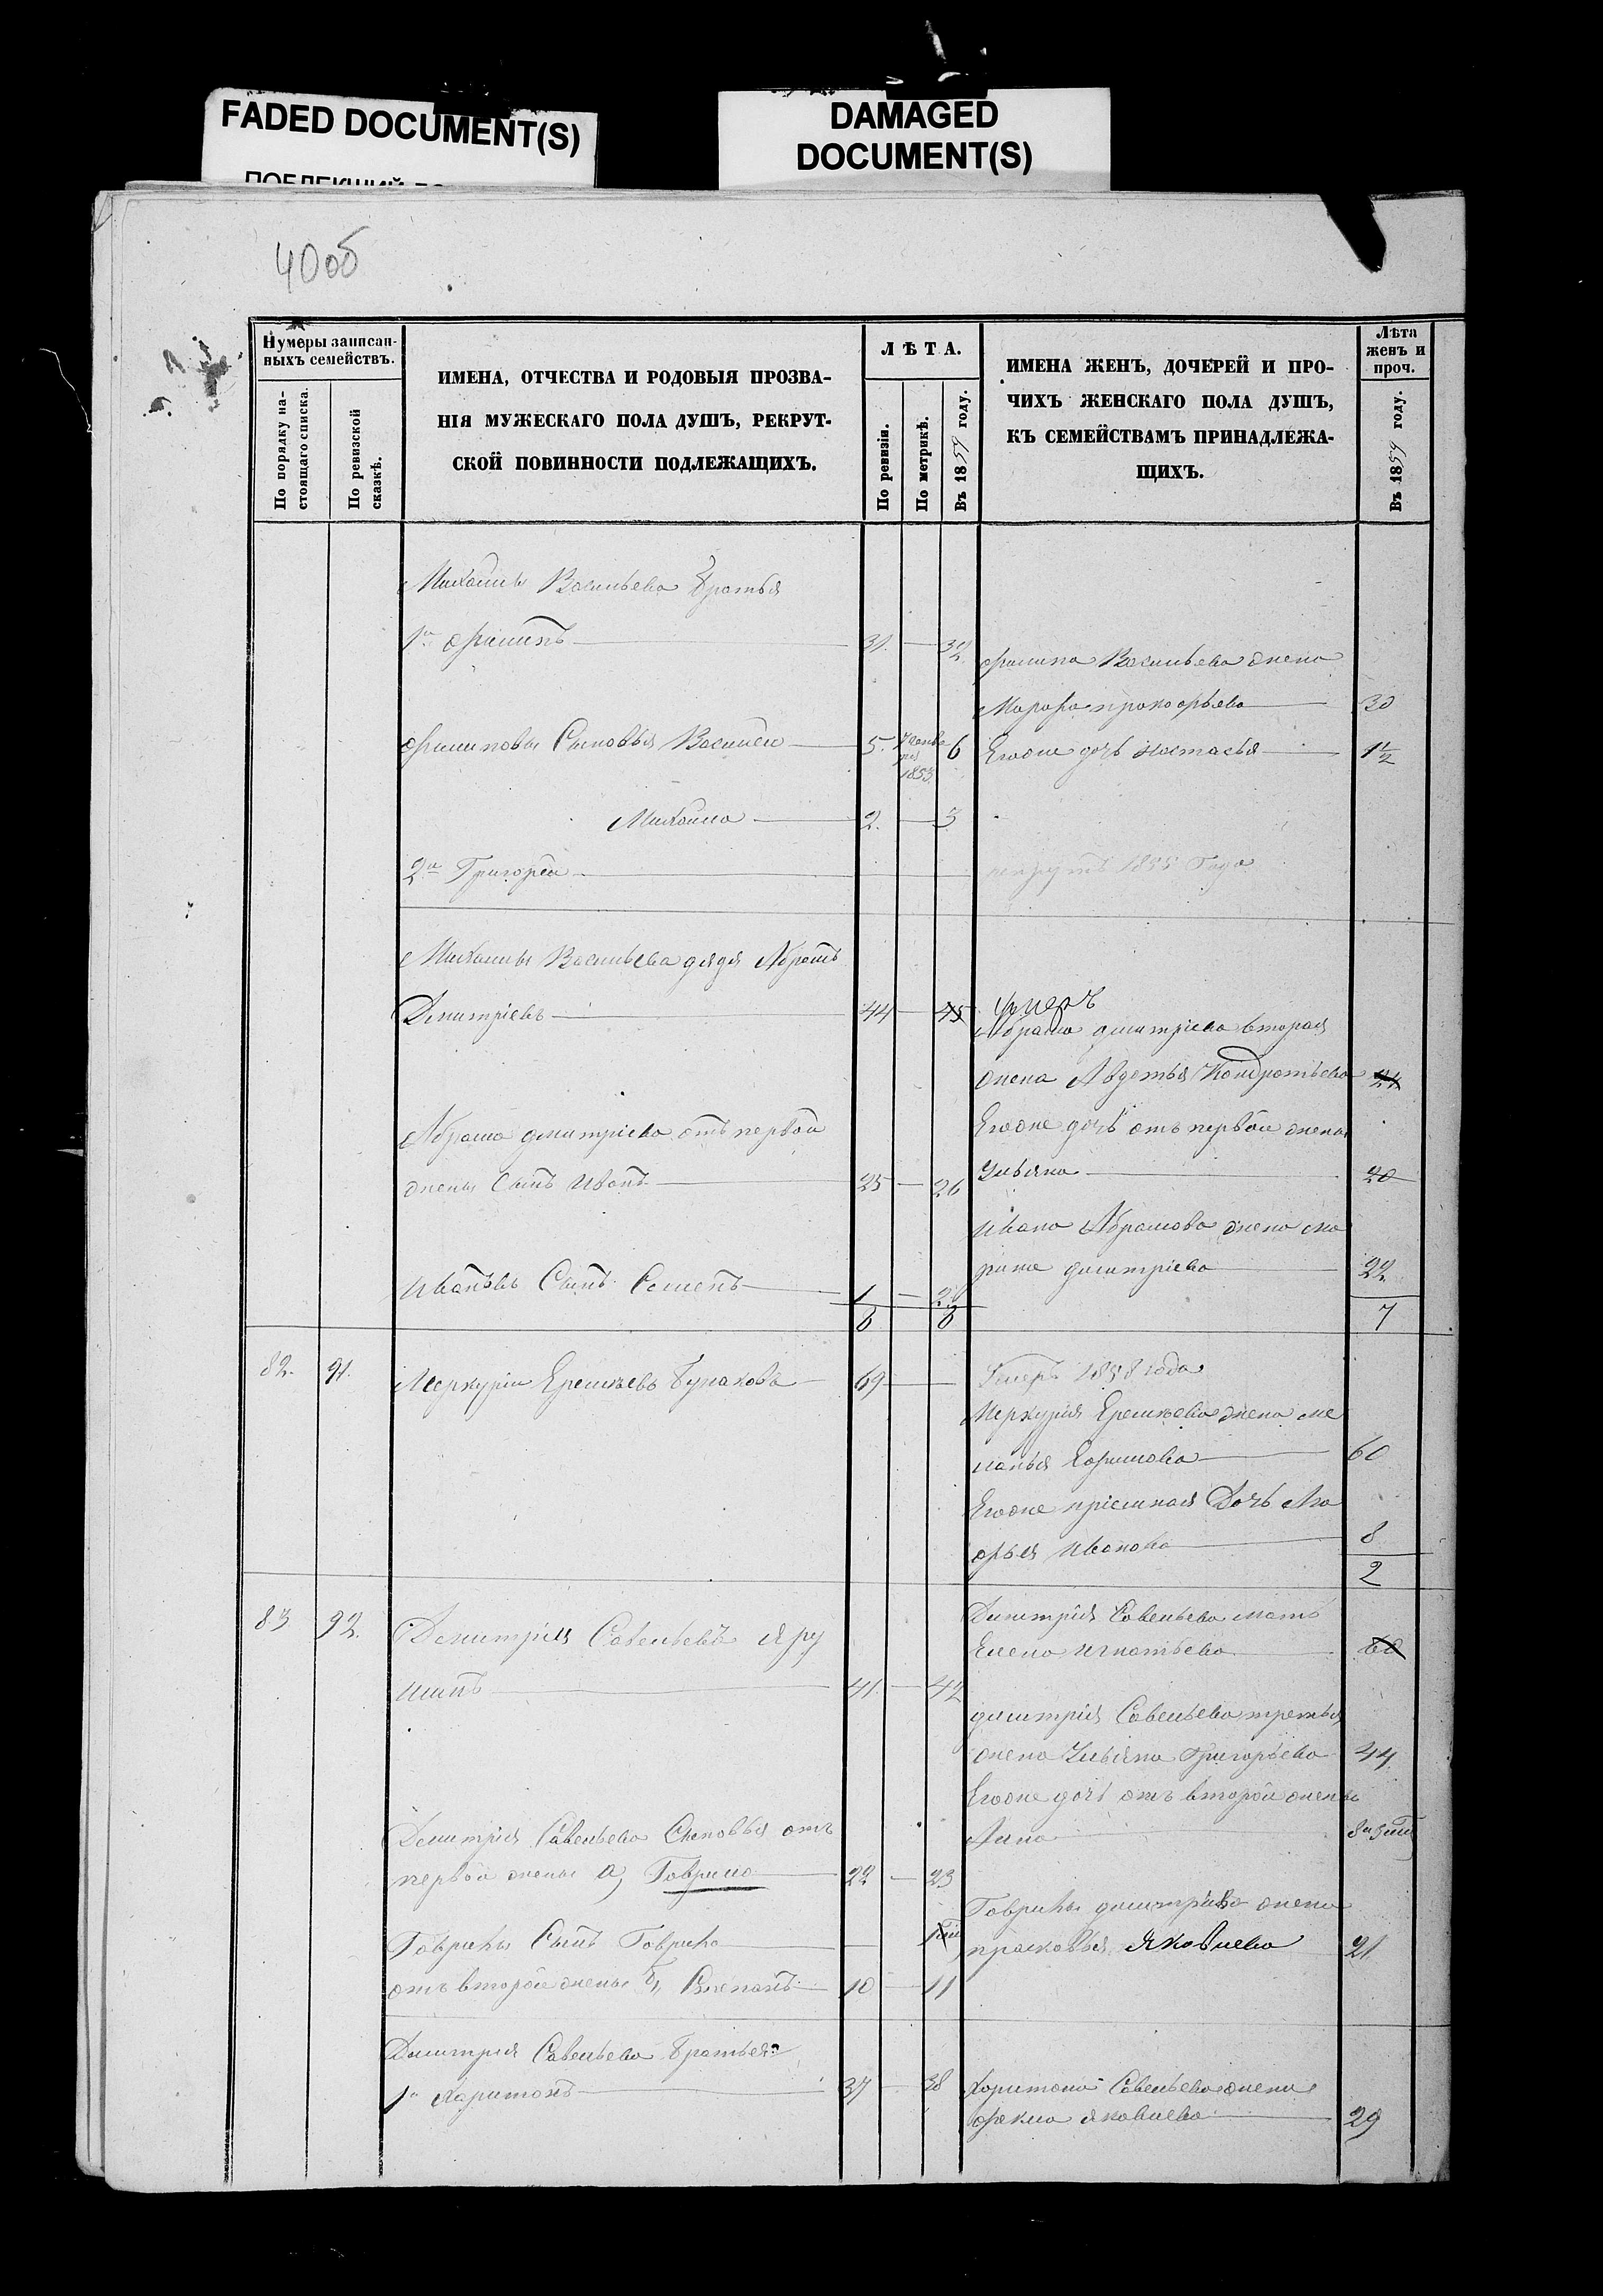 FADED DOCUMENT(S)
DAMAGED
DOCUMENT(S)
40об
Нумеры записан-
ныхъ семействъ.
По порядку на-
стоящаго списка.
По ревизской
сказкѣ.
ИМЕНА, ОТЧЕСТВА И РОДОВЫЯ ПРОЗВА-
НІЯ МУЖЕСКАГО ПОЛА ДУШЪ, РЕКРУТ-
СКОЙ ПОВИННОСТИ ПОДЛЕЖАЩИХЪ.
ЛѢТА.
По ревизіи.
По метрикѣ.
Въ 1859 году.
ИМЕНА ЖЕНЪ, ДОЧЕРЕЙ И ПРО-
ЧИХЪ ЖЕНСКАГО ПОЛА ДУШЪ,
КЪ СЕМЕЙСТВАМЪ ПРИНАДЛЕЖА-
ЩИХЪ.
Лѣта
женъ и
проч.
Въ 1859 году.
Михайлы Васильева братья
1й Филипъ 31 32
Филипа Васильева жена
Марфа прокофьева 30
Филиповы Сыновья Василей 5 1853 6 Егоже дочь Настасья 1½
Михайла 2 3
2й Григорей рекрутъ 1855 Года
Михайлы Васильева дядя Абрамъ
Дмитріевъ 44 45 умеръ
Абрама дмитріева вторая
жена Авдотья Кондратьева 44
Абрама дмитріева отъ первой Егоже дочь отъ первой жены
жены Сынъ Иванъ 25 26 Ульяна 20
Ивана Абрамова жена Ма
рина дмитріева 22
Ивановъ Сынъ Семенъ 1 2
8 8 7
82. 91. Меркурій Еремѣевъ Бунаковъ 69 Умеръ 1858 года
Меркурія Еремѣева жена Ме
ланья Ефимова 60
Егоже пріемная Дочь Ма
рфья Иванова 8
2
83 92. Дмитрій Савельевъ Яру
шинъ 41 42
Дмитрія Савельева мать
Елена Игнатьева 60
дмитрія Савельева третья
жена Ульяна Григорьева 44
Егоже дочь отъ второй жены
Анна
Дмитрія Савельева Сыновья отъ
первой жены а, Гаврило 22 23
Гаврилы дмитріева жена
прасковья Яковлева 21
Гаврилы Сынъ Гаврило
отъ второй жены б, Степанъ 10 11
Дмитрія Савельева братья:
1й Харитонъ 37 38 Харитона Савельева жена
фекла Яковлева 29